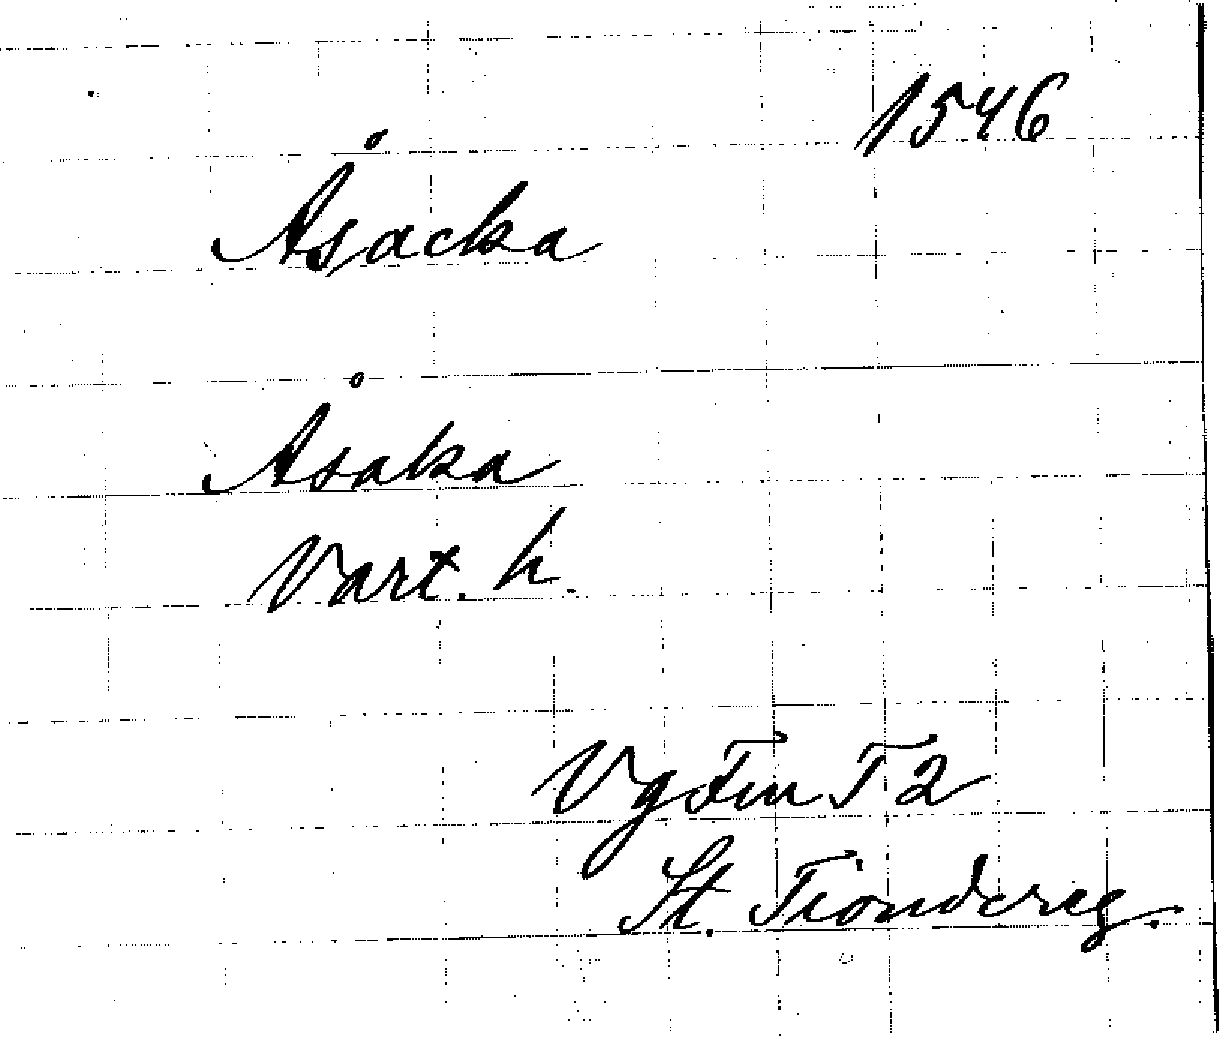 1546
Åsacka
Åsaka
Vart. h.
Vg Fin T 2
St. Tiondereg.